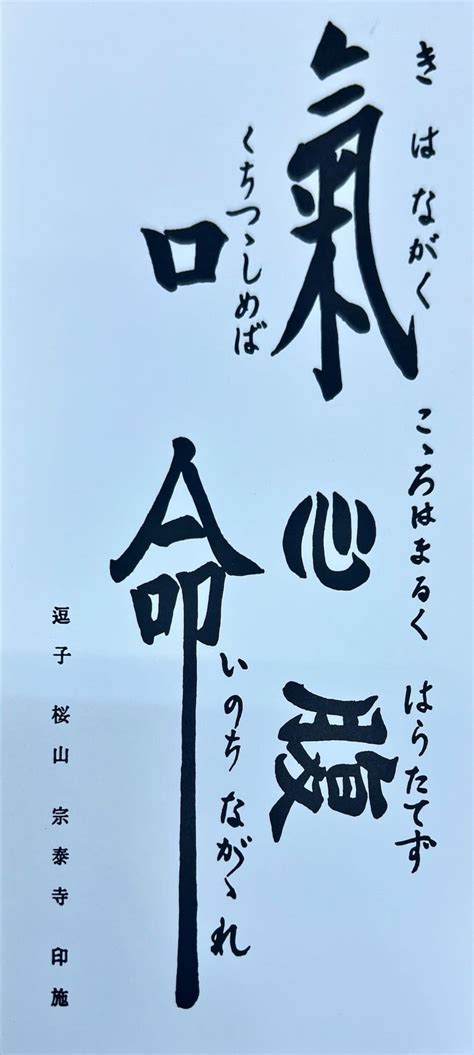 きはながく こゝろはまるく はらたてず
氣心腹
くちつゝしめば いのちながゝれ
口命
逗子 桜山 宗泰寺 印施